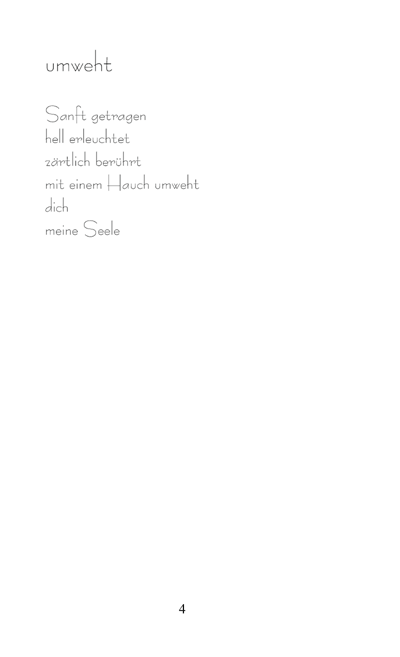 umweht
Sanft getragen
hell erleuchtet
zärtlich berührt
mit einem Hauch umweht
dich
meine Seele
4